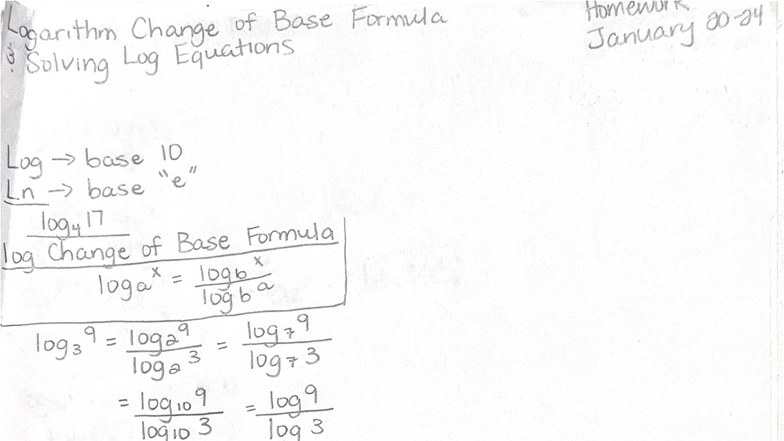 Logarithm Change of Base Formula
& Solving Log Equations
Homework
January 20-24
Log → base 10
Ln → base "e"
log₄17
log Change of Base Formula
logₐx = log_b x / log_b a
log₃9 = log₂9 / log₂3 = log₇9 / log₇3
= log₁₀9 / log₁₀3 = log 9 / log 3